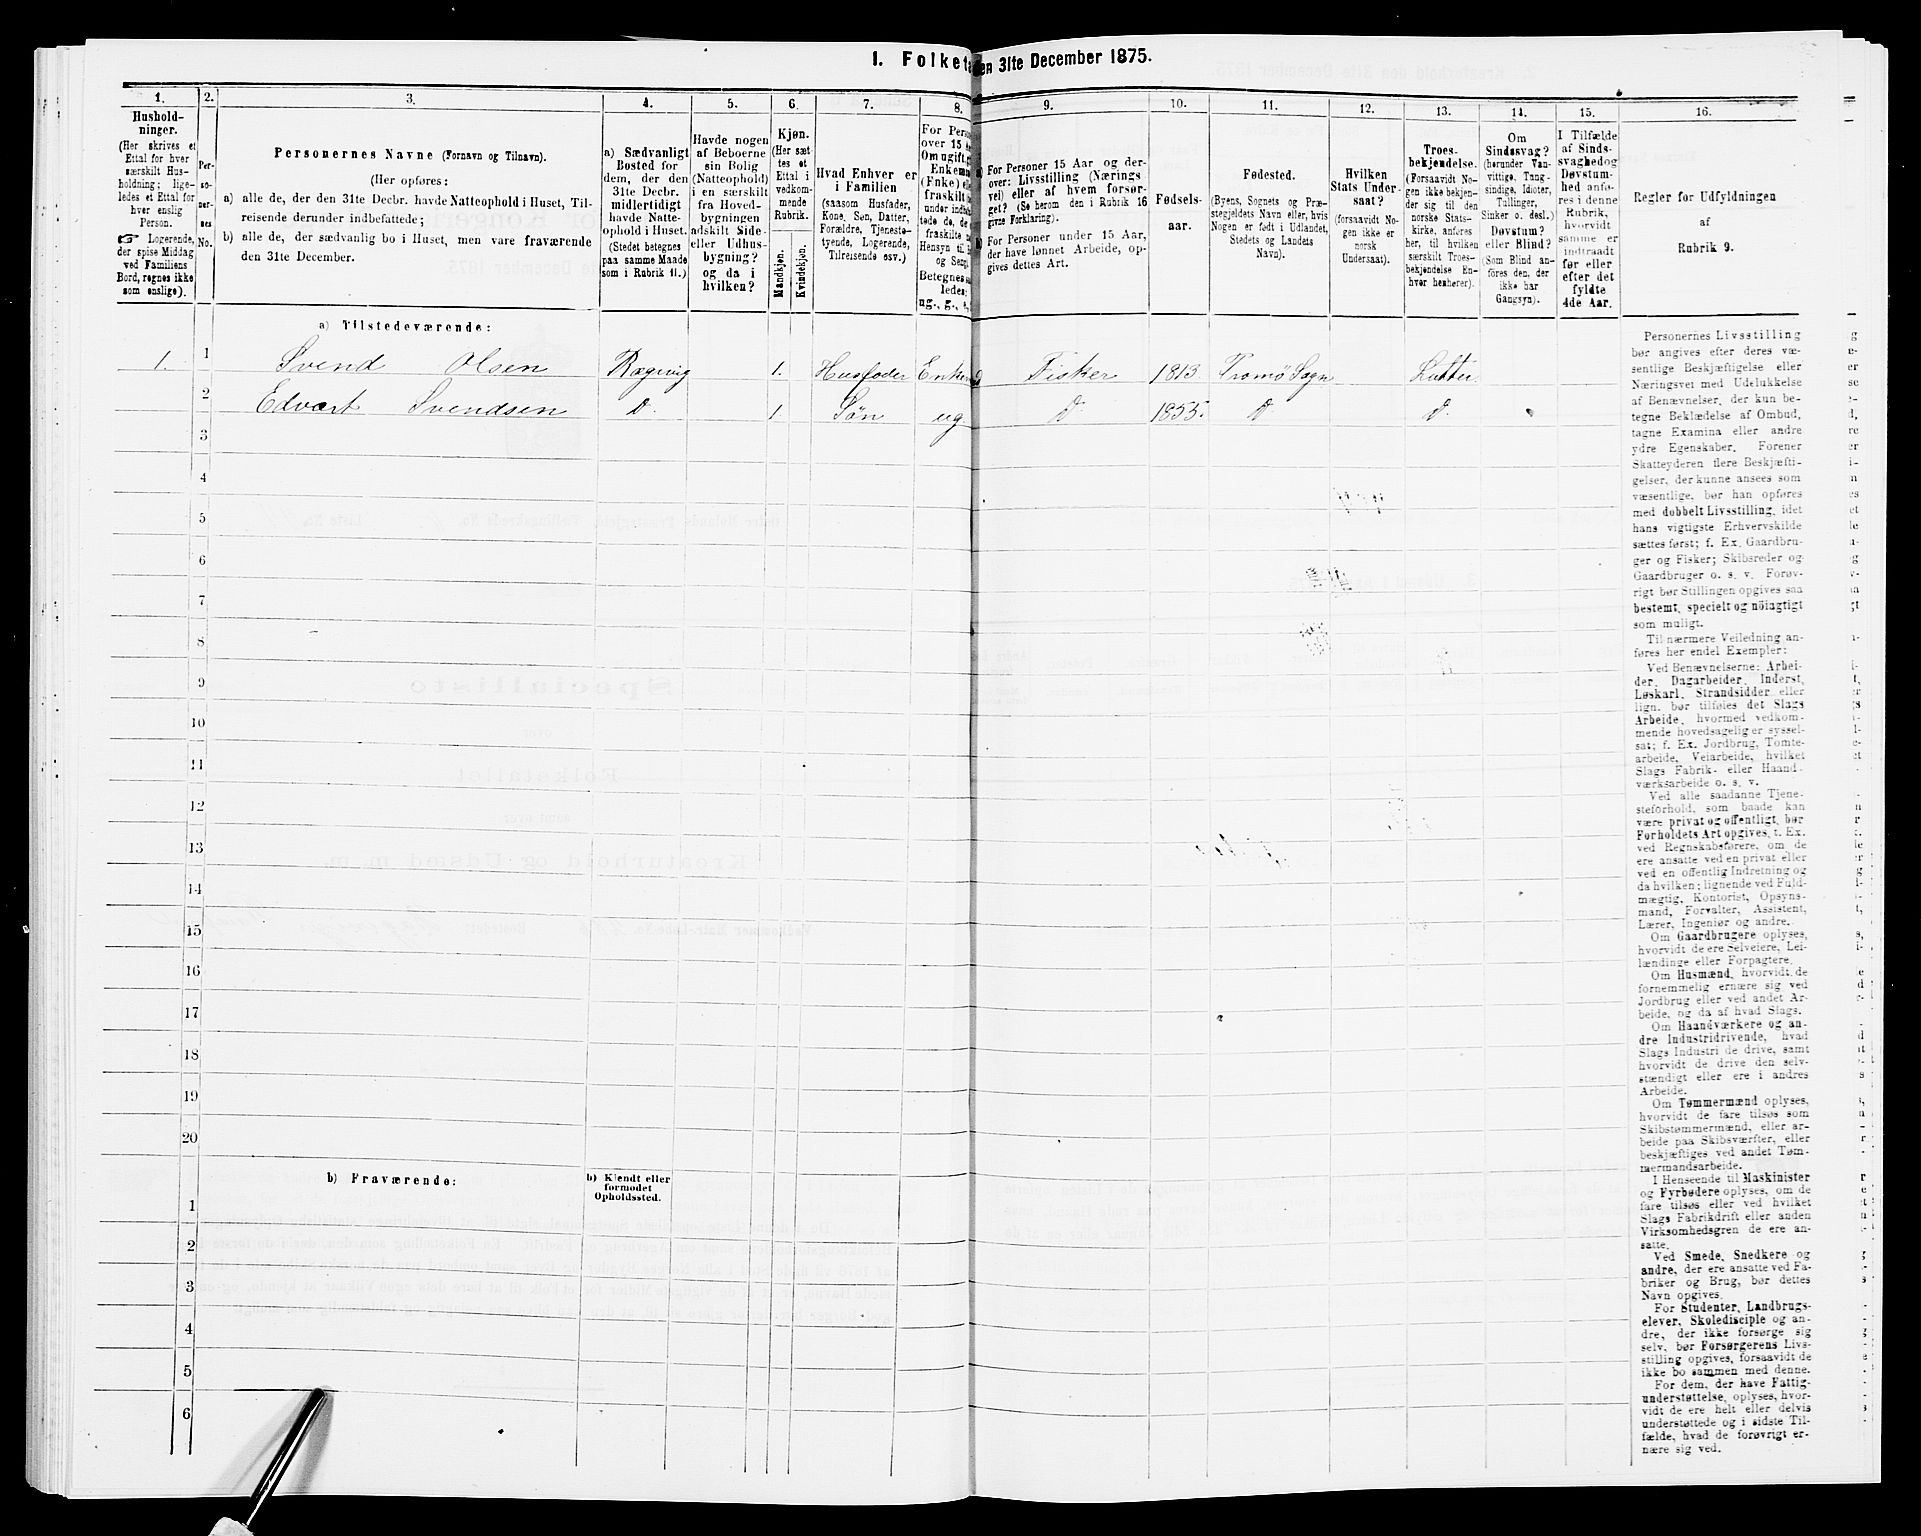 1. Folketa en 31te December 1875.
1. 2. 3. 4. 5. 6. 7. 8. 9. 10. 11. 12. 13. 14. 15. 16.
Hushold-
ninger.
(Her skrives et
Ettal for hver
særskilt Hus-
holdning; lige-
ledes et Ettal for
hver enslig
Person.
☞ Logerende,
der spise Middag
ved Familiens
Bord, regnes ikke
som enslige).
Per-
so-
ner-
nes
No.
Personernes Navne (Fornavn og Tilnavn).
(Her opføres:
a) alle de, der den 31te Decbr. havde Natteophold i Huset, Til-
reisende derunder indbefattede;
b) alle de, der sædvanlig bo i Huset, men vare fraværende
den 31te December.
a) Sædvanligt
Bosted for
dem, der den
31te Decbr.
midlertidigt
havde Natte-
ophold i Huset.
(Stedet betegnes
paa samme Maade
som i Rubrik 11.)
Havde nogen
af Beboerne
sin Bolig
(Natteophold)
i en særskilt
fra Hoved-
bygningen
adskilt Side-
eller Udhus-
bygning?
og da i
hvilken?
Kjøn.
(Her sæt-
tes et
Ettal i
vedkom-
mende
Rubrik.
Mandkjøn.
Kvindekjøn.
Hvad Enhver er
i Familien
(saasom Husfader,
Kone, Søn, Datter,
Forældre, Tjeneste-
tyende, Logerende,
Tilreisende osv.)
For Perso
over 15
Om ugift,
Enkem
(Fnke)
fraskilt
under
tede de,
fraskilte
Hensyn til
og Seng.
Betegnes
ledes:
ug., g.,
a) For Personer 15 Aar og der-
over: Livsstilling (Nærings-
vei) eller af hvem forsør-
get? (Se herom den i Rubrik 16
givne Forklaring).
b) For Personer under 15 Aar,
der have lønnet Arbeide, op-
gives dettes Art.
Fødsels-
aar.
Fødested.
(Byens, Sognets og Præ-
stegjeldets Navn eller, hvis
Nogen er født i Udlandet,
Stedets og Landets
Navn).
Hvilken
Stats Under-
saat?
(forsaavidt No-
gen ikke er
norsk
Undersaat).
Troes-
bekjendelse.
(Forsaavidt No-
gen ikke bekjen-
der sig til den
norske Stats-
kirke, anføres
her, til hvilken
særskilt Troes-
bekjendelse En-
hver henhører).
Om
Sindssvag?
(herunder Van-
vittige, Tung-
sindige, Idioter,
Tullinger,
Sinker o. desl.)
Døvstum?
eller Blind?
(Som Blind an-
føres den, der
ikke har
Gangsyn).
I Tilfælde
af Sinds-
svaghed og
Døvstum-
hed anfø-
res i denne
Rubrik,
hvorvidt
samme er
indtraadt
før eller
efter det
fyldte
4de Aar.
Regler for Udfyldningen
af
Rubrik 9.
a) Tilstedeværende:
1. 1 Svend Olsen Rægevig 1. Husfader Enkem Fisker 1813 Tromö Sogn Luther.
2 Edvart Svendsen D. 1 Søn ug. D 1855. D D.
3
4
5
6
7
8
9
10
11
12
13
14
15
16
17
18
19
20
b) Fraværende:
b) Kjendt eller
formodet
Opholdssted.
1
2
3
4
5
6
Personernes Livsstilling
bør angives efter deres væ-
sentlige Beskjæftigelse eller
Næringsvei med Udelukkelse
af Benævnelser, der kun be-
tegne Beklædelse af Ombud,
tagne Examina eller andre
ydre Egenskaber. Forener
Skatteyderen flere Beskjæfti-
gelser, der kunne ansees som
væsentlige, bør han opføres
med dobbelt Livsstilling, idet
hans vigtigste Erhvervskilde
sættes først; f. Ex. Gaardbru-
ger og Fisker; Skibsreder og
Gaardbruger o. s. v. Forøv-
rigt bør Stillingen opgives saa
bestemt, specielt og nöiagtigt
som muligt.
Til nærmere Veiledning an-
føres her endel Exempler:
Ved Benævnelserne: Arbei-
der, Dagarbeider, Inderst,
Løskarl, Strandsidder eller
lign. bør tilføies det Slags
Arbeide, hvormed vedkom-
mende hovedsagelig er syssel-
sat; f. Ex. Jordbrug, Tomte-
arbeide, Veiarbeide, hvilket
Slags Fabrik- eller Haand-
værksarbeide o. s. v.
Ved alle saadanne Tjene-
steforhold, som baade kan
være privat og offentligt, bør
Forholdets Art opgives, t. Ex.
ved Regnskabsførere, om de
ere ansatte ved en privat eller
ved en offentlig Indretning og
da hvilken; lignende ved Fuld-
mægtig, Kontorist, Opsyns-
mand, Forvalter, Assistent,
Lærer, Ingeniør og andre.
Om Gaardbrugere oplyses,
hvorvidt de ere Selveiere, Lei-
lændinge eller Forpagtere.
Om Husmænd, hvorvidt de
fornemmelig ernære sig ved
Jordbrug eller ved andet Ar-
beide, og da af hvad Slags.
Om Haandværkere og an-
dre Industridrivende, hvad
Slags Industri de drive, samt
hvorvidt de drive den selv-
stændigt eller ere i andres
Arbeide.
Om Tømmermænd oplyses,
hvorvidt de fare tilsøs som
Skibstømmermænd, eller ar-
beide paa Skibsværfter, eller
beskjæftiges ved andet Tøm-
mermandsarbeide.
I Henseende til Maskinister
og Fyrbødere oplyses, om de
fare tilsøs eller ved hvilket
Slags Fabrikdrift eller anden
Virksomhedsgren de ere an-
satte.
Ved Smede, Snedkere og
andre, der ere ansatte ved Fa-
briker og Brug, bør dettes
Navn opgives.
For Studenter, Landbrugs-
elever, Skoledisciple og an-
dre, der ikke forsørge sig
selv, bør Forsørgerens Livs-
stilling opgives, forsaavidt de
ikke bo sammen med denne.
For dem, der have Fattig-
understøttelse, oplyses, hvor-
vidt de ere helt eller delvis
understøttede og i sidste Til-
fælde, hvad de forøvrigt er-
nære sig ved.